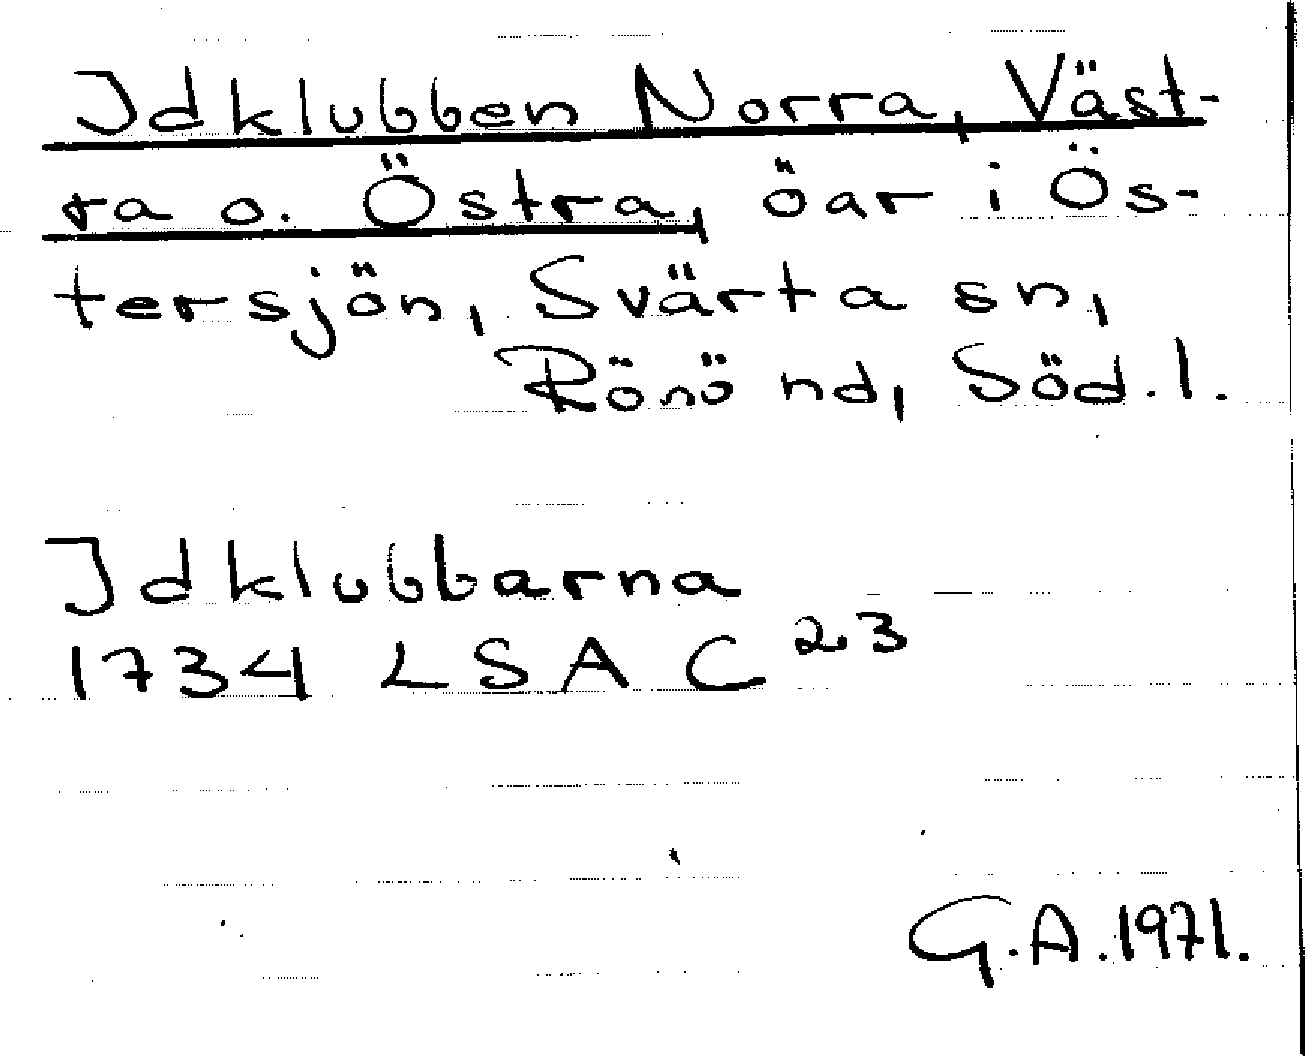 Idklubben Norra, Väst-
ra o. Östra, öar i Ös-
tersjön, Svärta sn,
Rönö hd, Söd. l.
Idklubbarna
1734 LSA C 23
G.A. 1971.